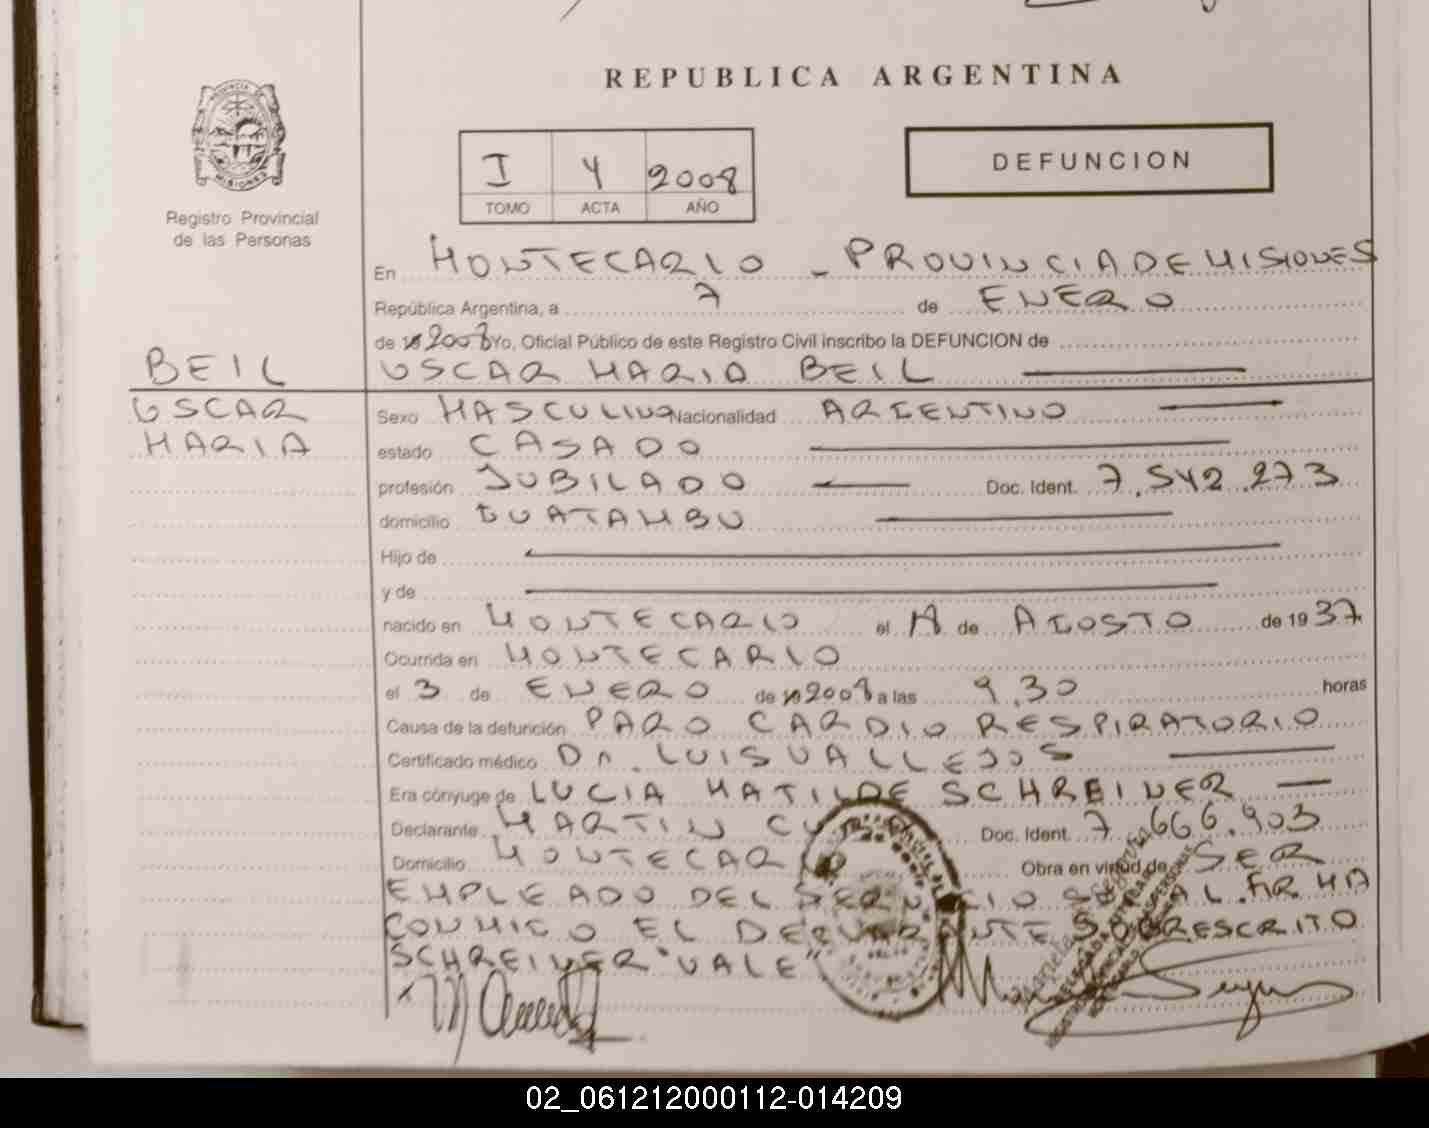 REPUBLICA ARGENTINA
PROVINCIA DE MISIONES
Registro Provincial
de las Personas
I 4 2008
TOMO ACTA AÑO
DEFUNCION
En MONTECARLO - PROVINCIA DE MISIONES
República Argentina, a 7 de ENERO
de 2008 Yo, Oficial Público de este Registro Civil inscribo la DEFUNCION de
BEIL
OSCAR MARIA BEIL
OSCAR
MARIA
Sexo MASCULINO Nacionalidad ARGENTINO
estado CASADO
profesión JUBILADO Doc. Ident. 7.542.273
domicilio GUATAMBU
Hijo de
y de
nacido en MONTECARLO el de AGOSTO de 1937
Ocurrida en MONTECARLO
el 3 de ENERO de 2008 a las 9.30 horas
Causa de la defunción PARO CARDIO RESPIRATORIO
Certificado médico Dr. LUIS VALLEJOS
Era cónyuge de LUCIA MATILDE SCHREINER
Declarante MARTIN Doc. Ident. 7.666.903
Domicilio MONTECARLO Obra en virtud de SER
EMPLEADO DEL SERVICIO SOCIAL. FIRMA
CONMIGO EL DECLARANTE SOBRESCRITO
SCHREINER "VALE"
02_061212000112-014209